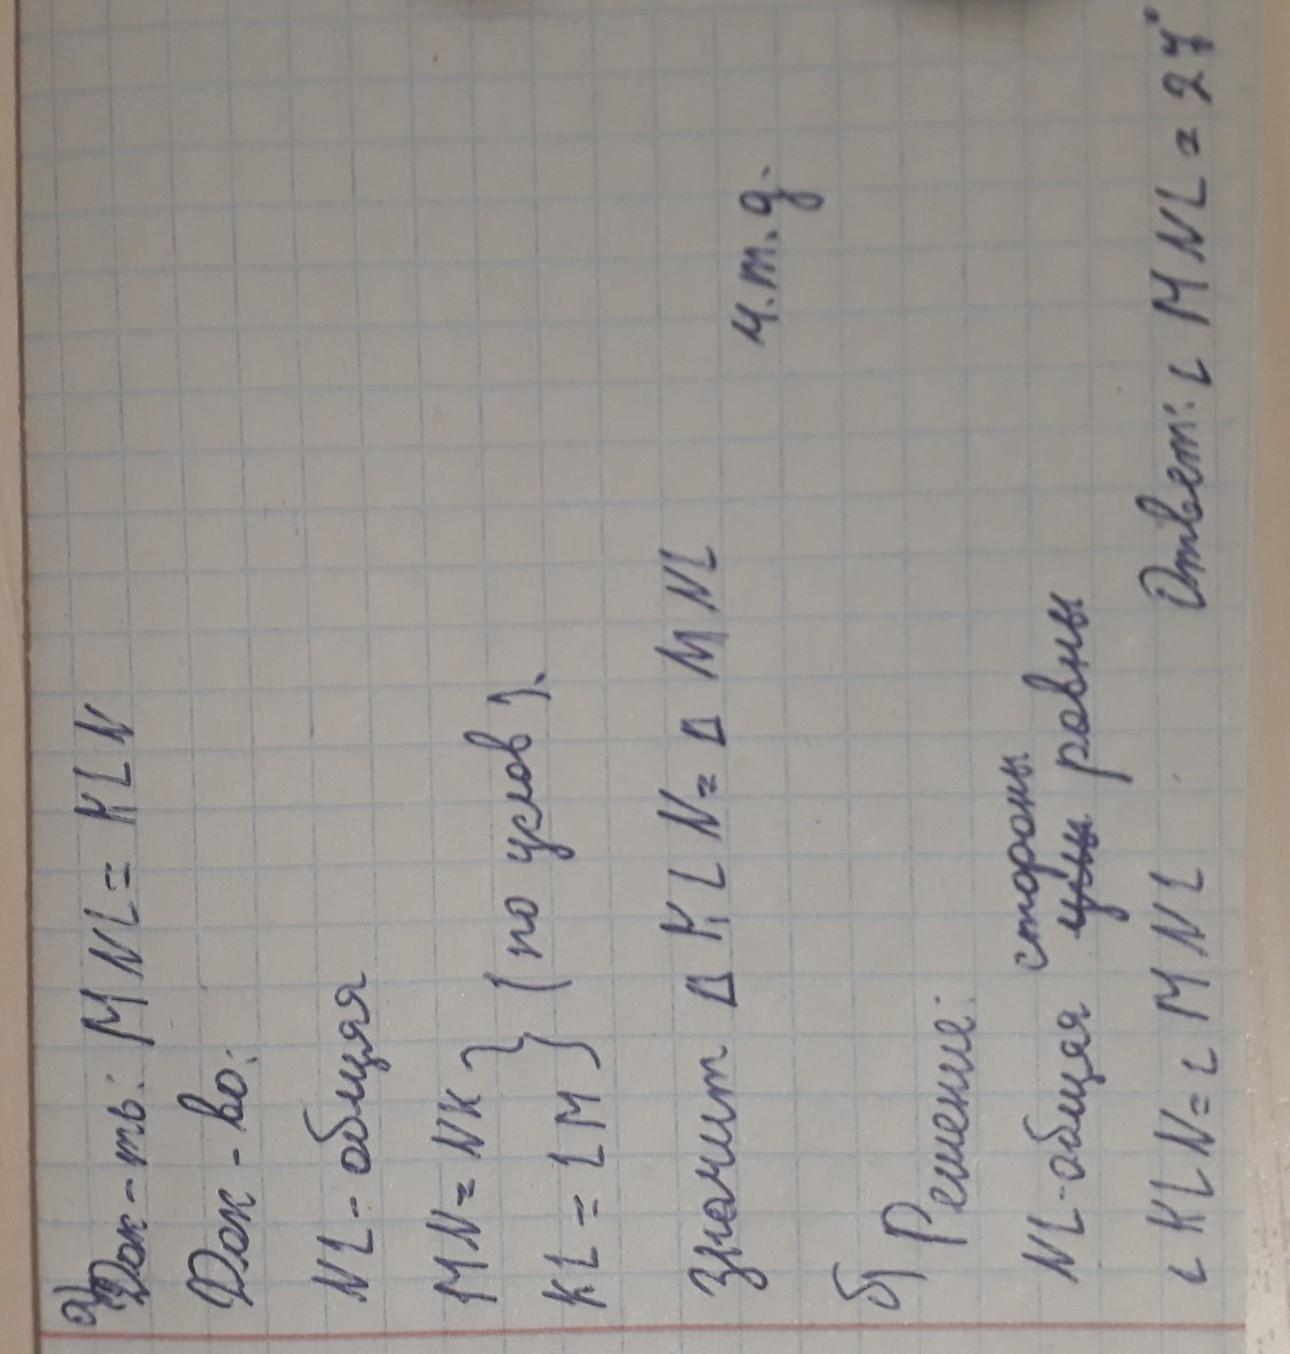 а) Док-ть: MNL = KLN
Док-во:
NL - общая
MN = NK }
KL = LM } (по услов).
Значит Δ KLN = Δ MNL
ч.т.д.
б) Решение:
NL - общая стороны равны
∟ KLN = ∟ MNL
Ответ: ∟ MNL = 27°